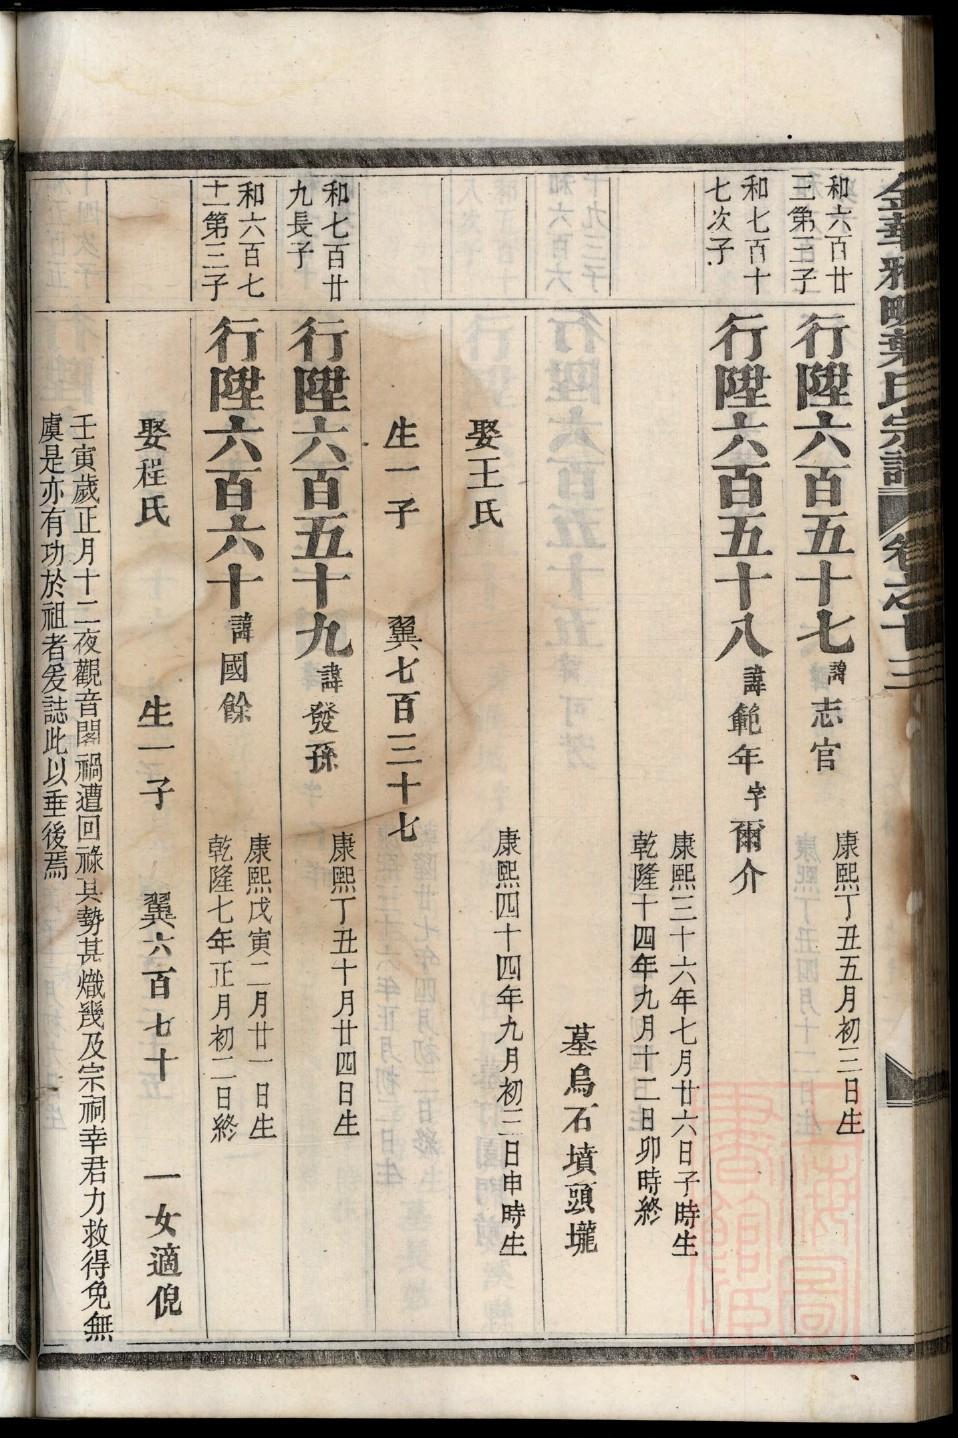 金華雅畈葉氏宗譜 卷之十三
和六百廿
三第三子
行陞六百五十七 諱志官
康熙丁丑五月初三日生
和七百十
七次子
行陞六百五十八 諱範年 字爾介
康熙三十六年七月廿六日子時生
乾隆十四年九月十二日卯時終
墓烏石墳頭壠
娶王氏
康熙四十四年九月初二日申時生
生一子 翼七百三十七
和七百廿
九長子
行陞六百五十九 諱發孫
康熙丁丑十月廿四日生
和六百七
十一第三子
行陞六百六十 諱國餘
康熙戊寅二月廿一日生
乾隆七年正月初二日終
娶程氏 生一子 翼六百七十 一女適倪
壬寅歲正月十二夜觀音閣禍遭回祿其勢甚熾幾及宗祠幸君力救得免無
虞是亦有功於祖者爰誌此以垂後焉